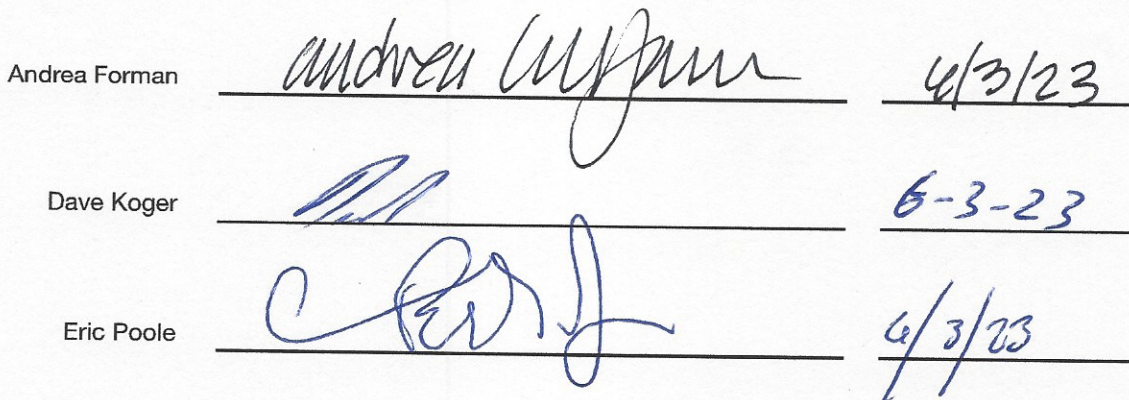 Andrea Forman andrea 6/3/23
Dave Koger 6-3-23
Eric Poole 6/3/23